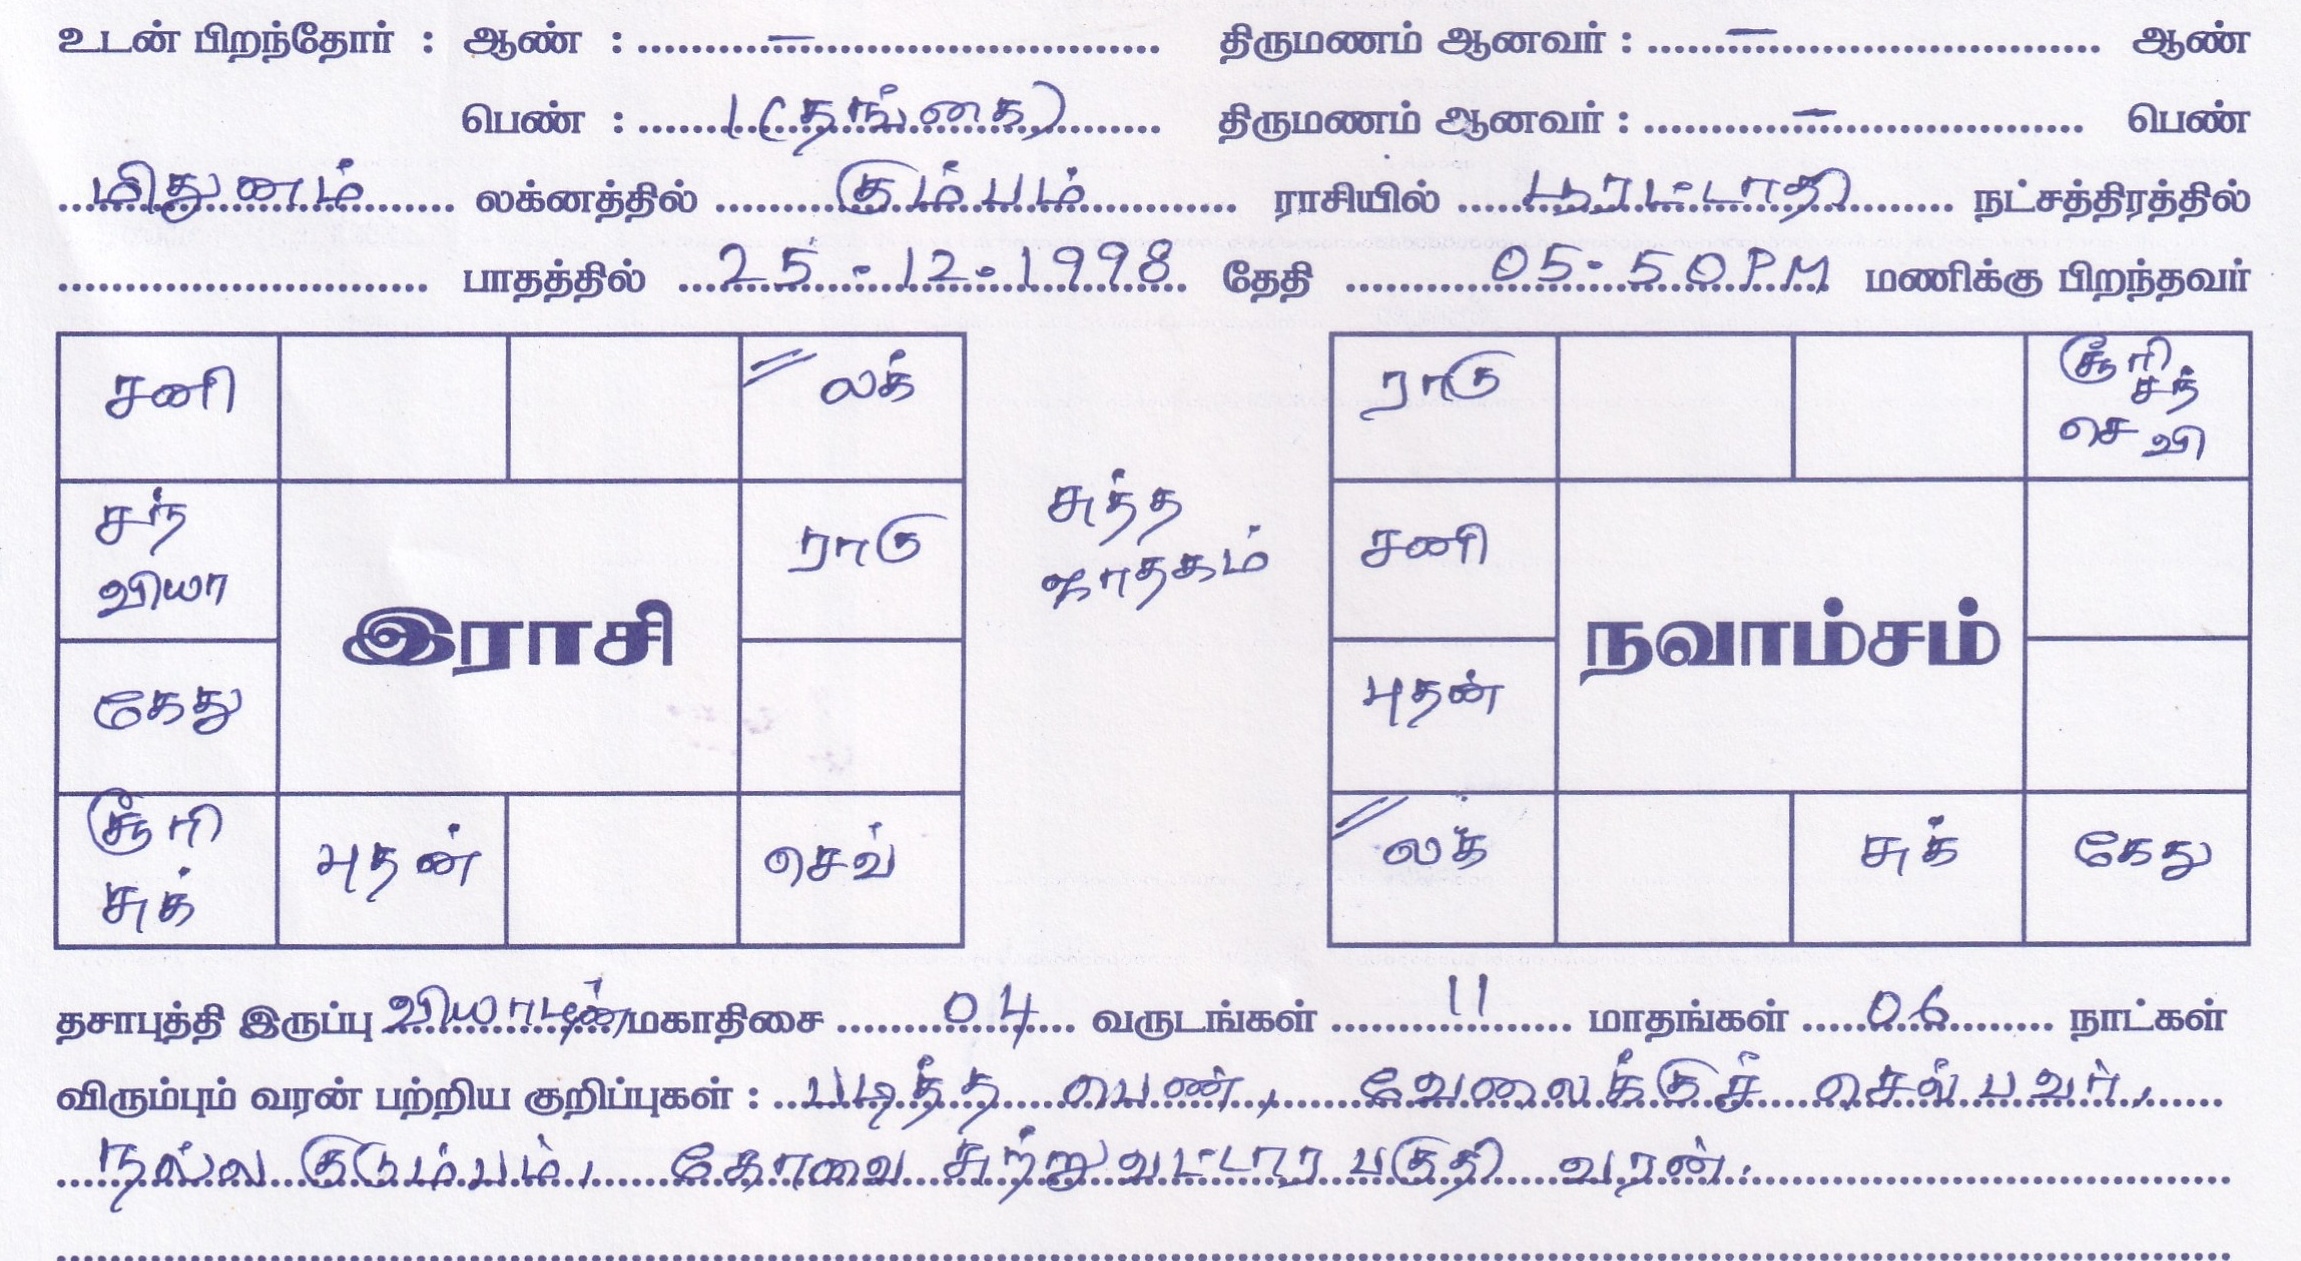 உடன் பிறந்தோர் : ஆண் : – திருமணம் ஆனவர் : – ஆண்
பெண் : 1 (தங்கை) திருமணம் ஆனவர் : – பெண்
மிதுனம் லக்னத்தில் கும்பம் ராசியில் பூரட்டாதி நட்சத்திரத்தில்
பாதத்தில் 25-12-1998 தேதி 05-50PM மணிக்கு பிறந்தவர்
சனி
லக்
சந்
வியா
ராகு
இராசி
கேது
சூரி
சுக்
புதன்
செவ்
சுத்த
ஜாதகம்
ராகு
சூரி
சந்
செ வி
சனி
நவாம்சம்
புதன்
லக்
சுக்
கேது
தசாபுத்தி இருப்பு வியாழன் மகாதிசை 04 வருடங்கள் 11 மாதங்கள் 06 நாட்கள்
விரும்பும் வரன் பற்றிய குறிப்புகள் : படித்த பெண், வேலைக்குச் செல்பவர்,
நல்ல குடும்பம், கோவை சுற்றுவட்டார பகுதி வரன்.